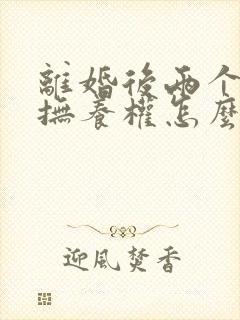 離婚後兩个
撫養權怎麼
迎風焚香